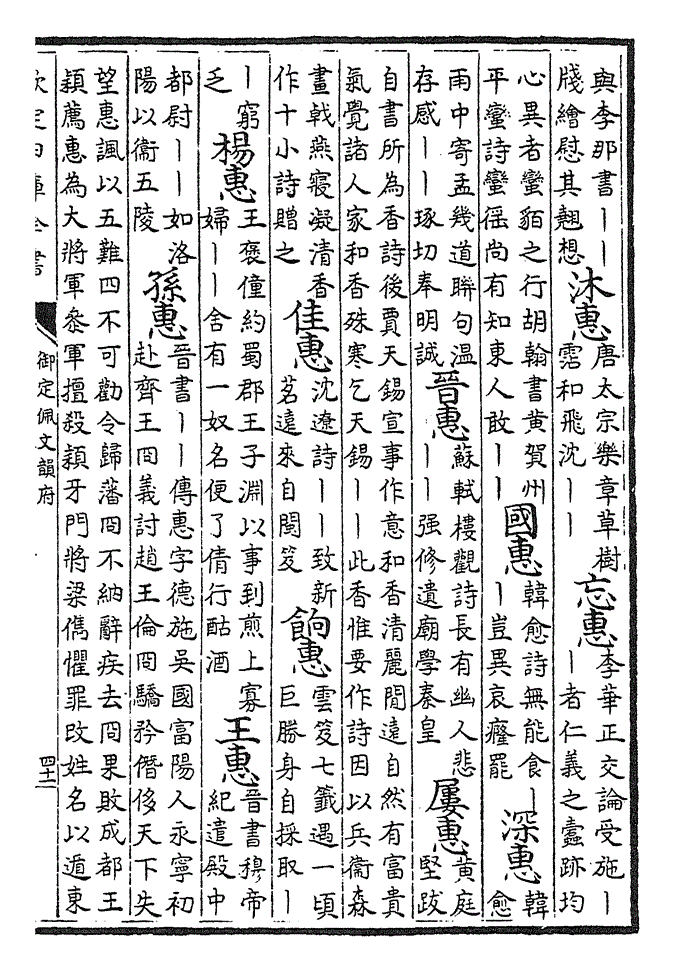 與李那書丨丨
牋繪慰其翹想
沐惠
唐太宗樂章草樹
霑和飛沈丨丨
忘惠
李華正交論受施丨
丨者仁義之蠹跡均
心異者蠻貊之行胡翰書黄賀州
平蠻詩蠻徭尚有知東人敢丨丨
國惠
韓愈詩無能食丨
丨豈異哀癃罷
深惠
韓
愈
雨中寄孟幾道聯句溫
存感丨丨琢切奉明誠
晉惠
蘇軾樓觀詩長有幽人悲
丨丨强修遺廟學秦皇
屢惠
黄庭
堅跋
自書所為香詩後賈天錫宣事作意和香清麗閒遠自然有富貴
氣覺諸人家和香殊寒乞天錫丨丨此香惟要作詩因以兵衞森
畫戟燕寢凝清香
作十小詩贈之
佳惠
沈遼詩丨丨致新
茗遠來自閩笈
餉惠
雲笈七籤遇一頃
巨勝身自採取丨
丨窮
乏
楊惠
王褒僮約蜀郡王子淵以事到煎上寡
婦丨丨舍有一奴名便了倩行酤酒
王惠
晉書穆帝
紀遣殿中
都尉丨丨如洛
陽以衞五陵
孫惠
晉書丨丨傳惠字德施吳國富陽人永寧初
赴齊王冏義討趙王倫冏驕矜僭侈天下失
望惠諷以五難四不可勸令歸藩冏不納辭疾去冏果敗成都王
穎薦惠為大將軍叅軍擅殺穎牙門將梁儁懼罪改姓名以遁東
欽定四庫全書
御定佩文韻府
四十二